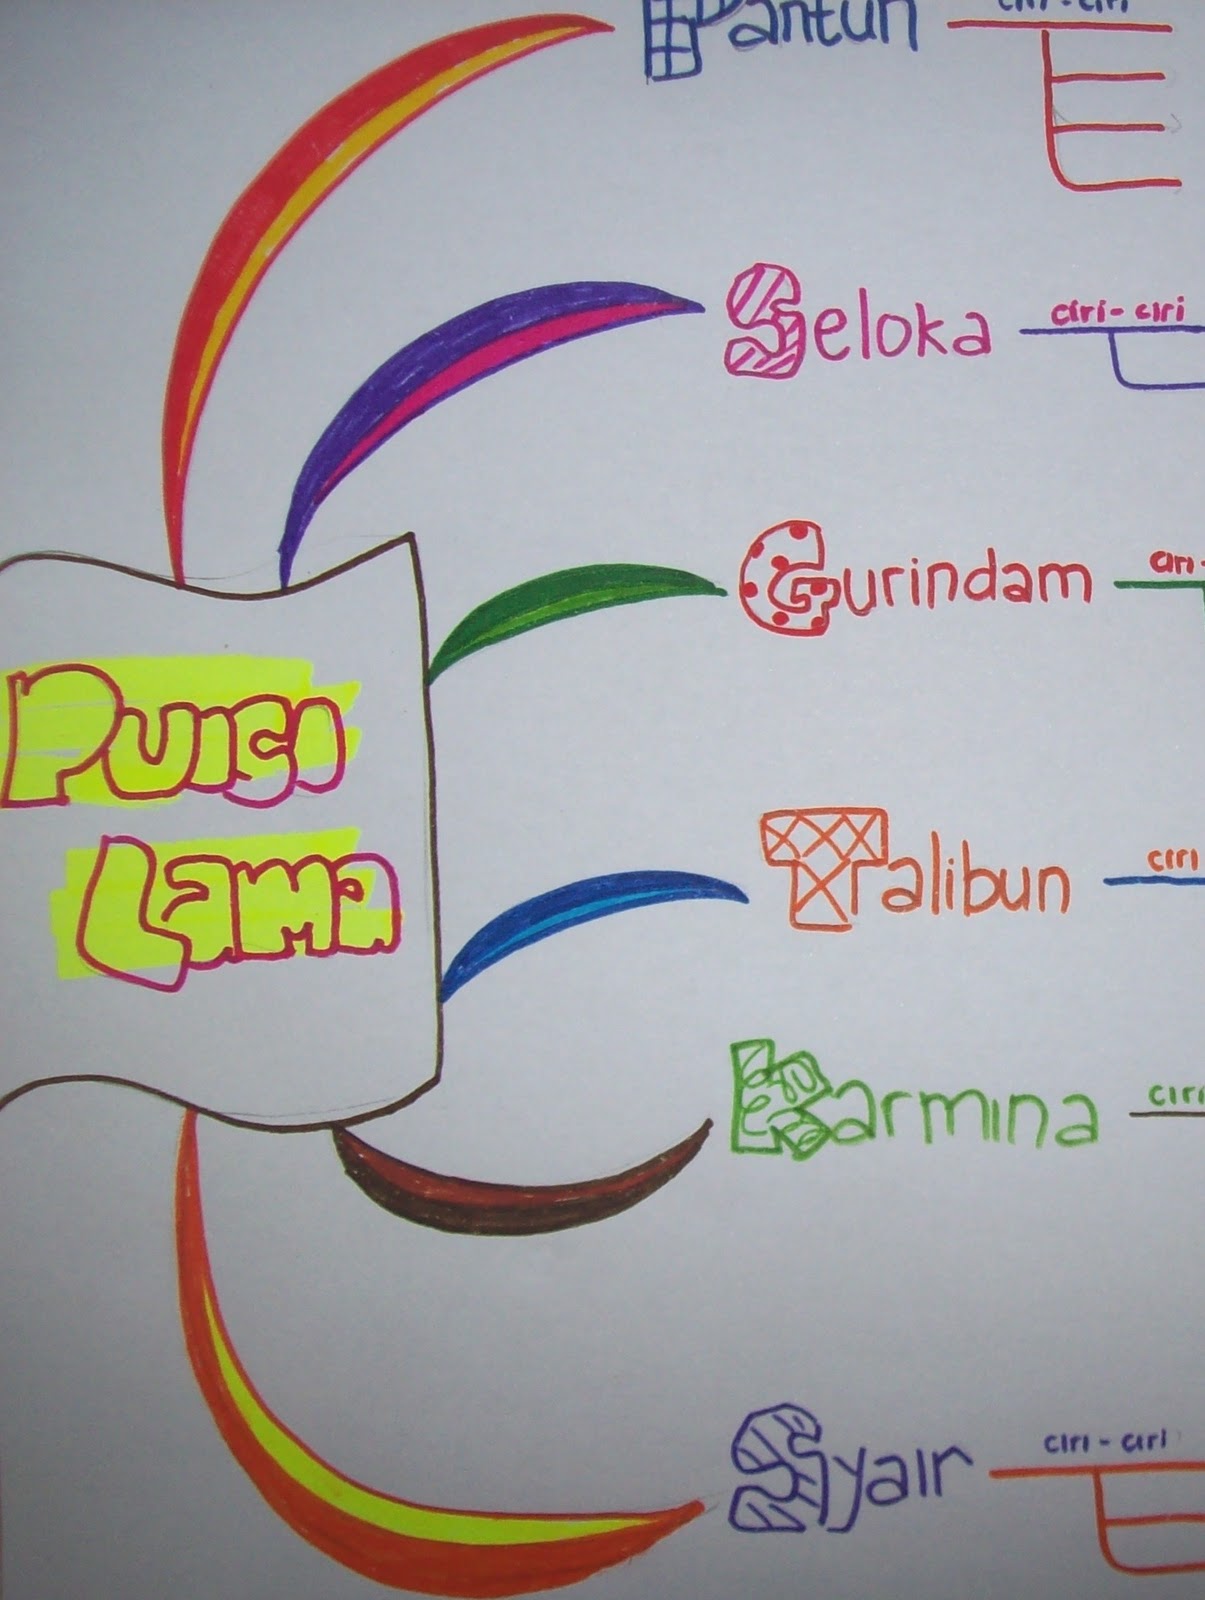 Pantun
ciri-ciri
Seloka
ciri-ciri
Gurindam
Puisi
Lama
Talibun
ciri
Karmina
ciri
Syair
ciri-ciri